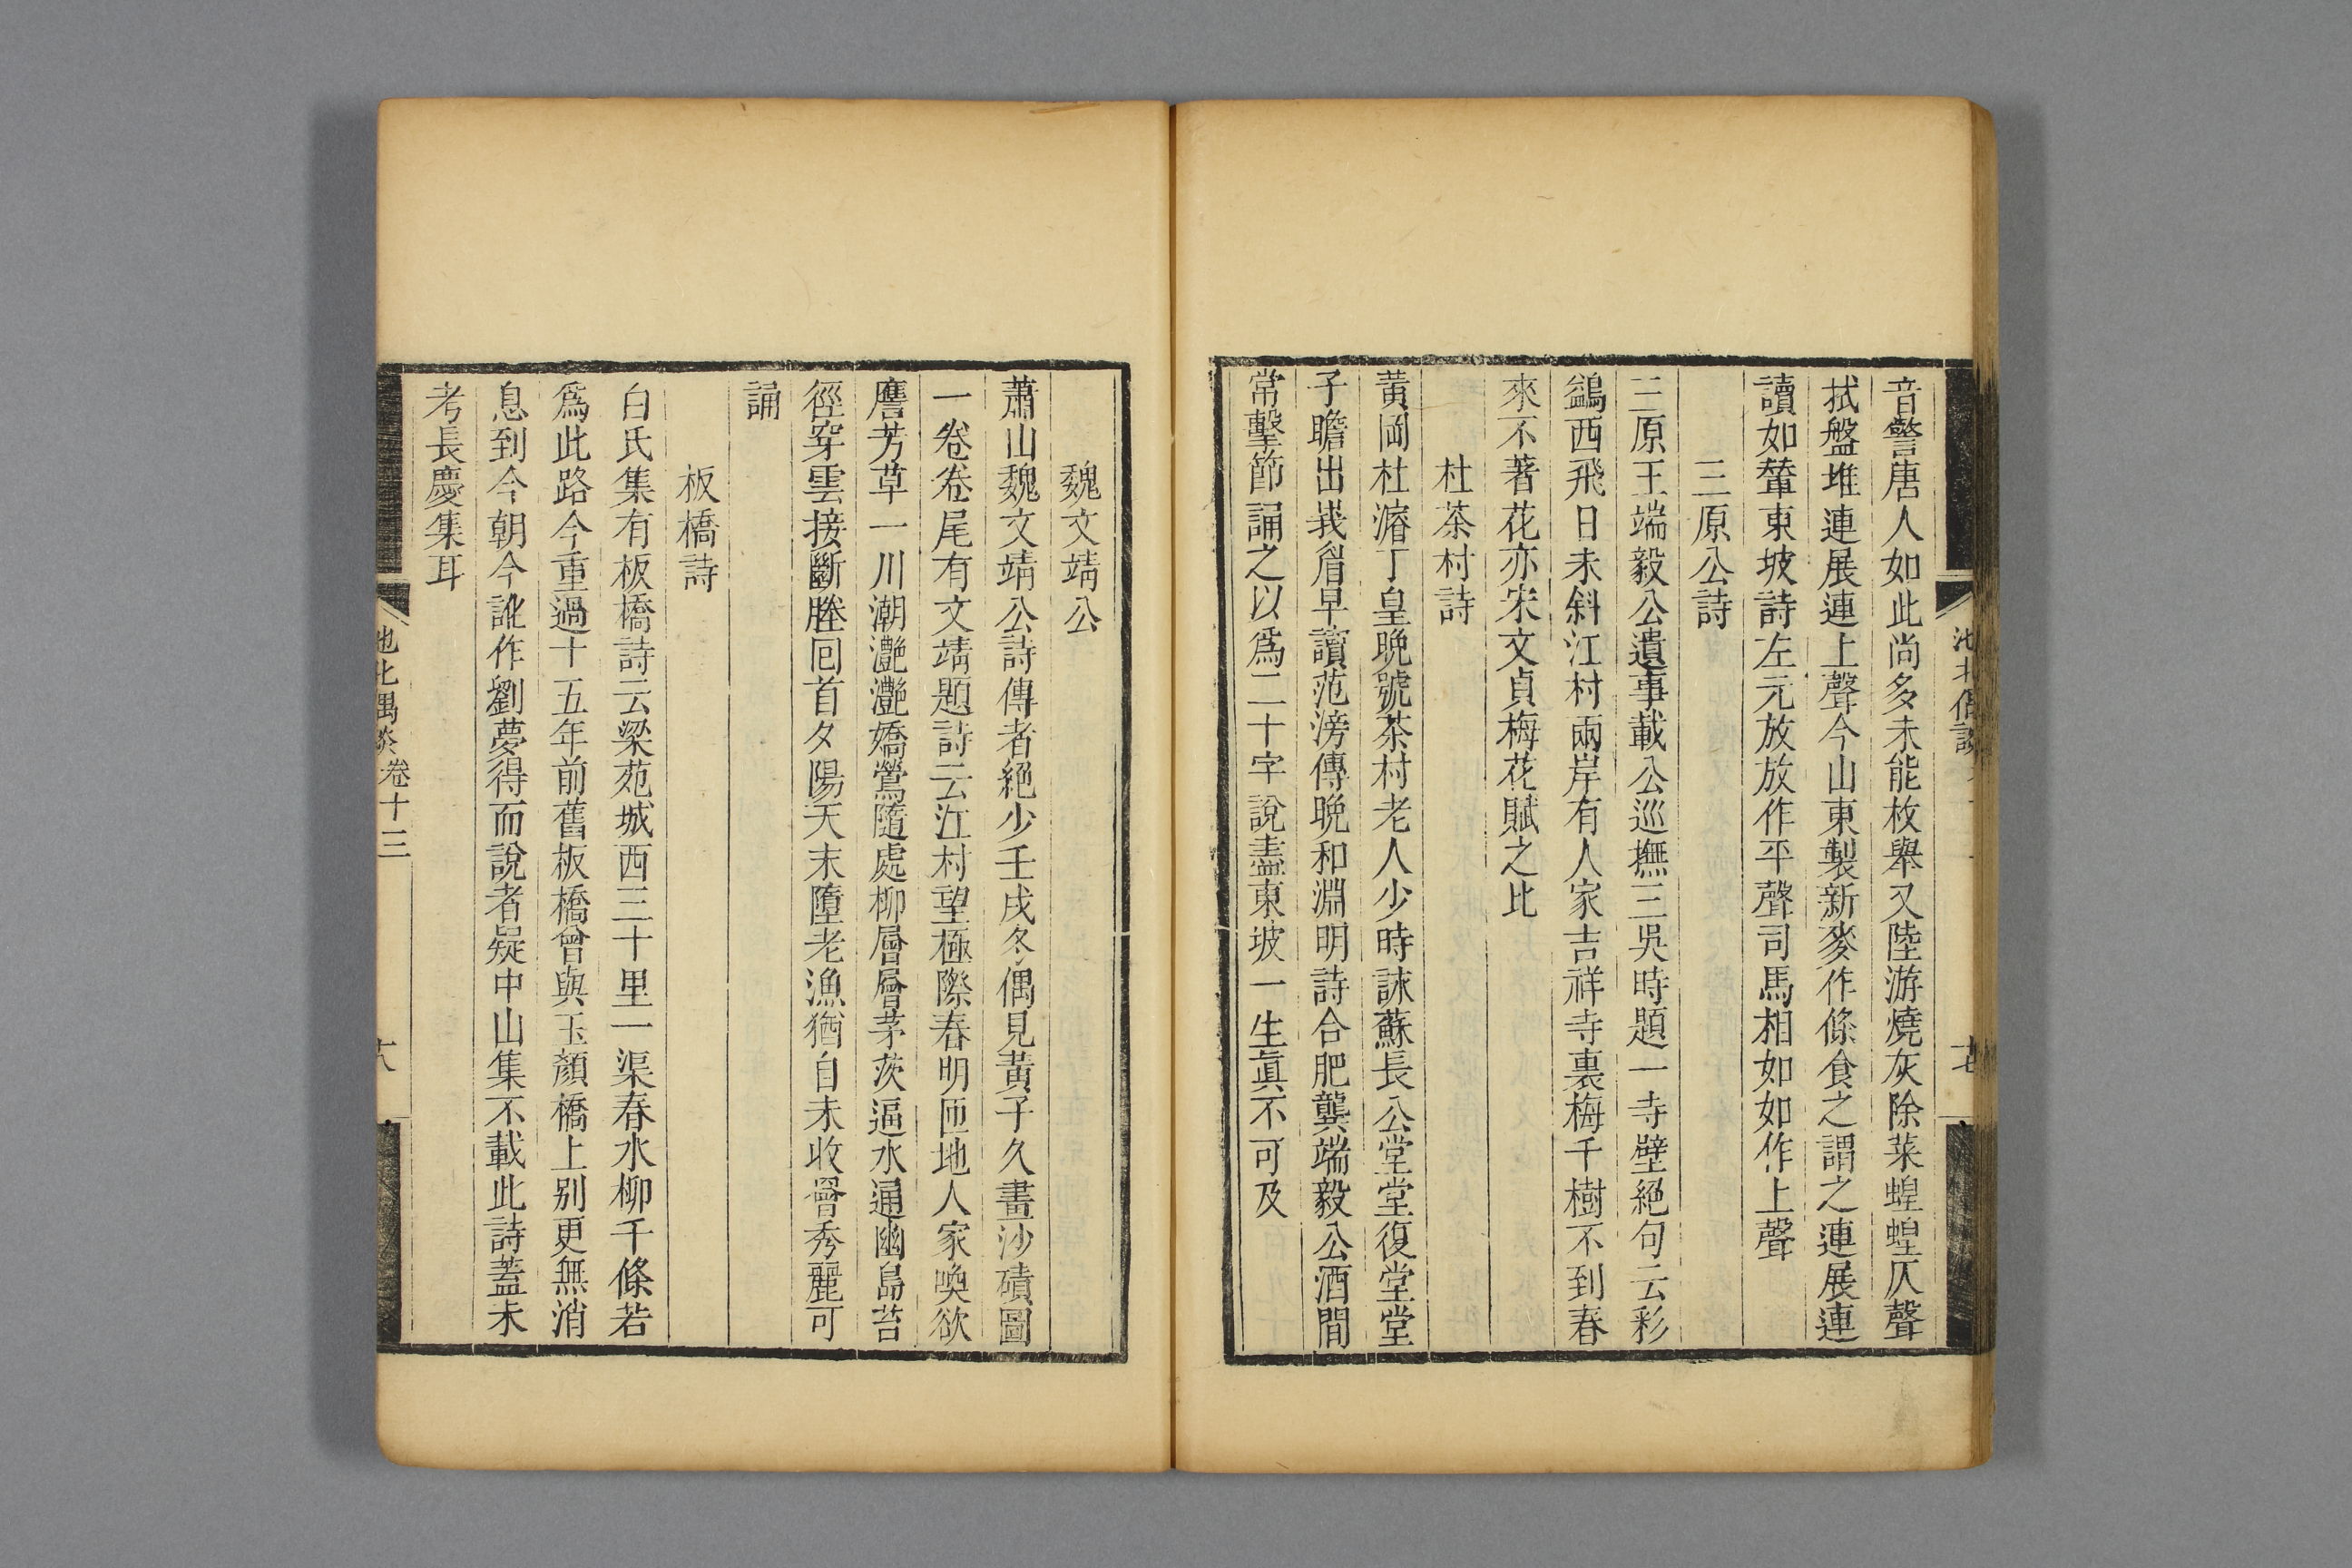 音警唐人如此尚多未能枚舉又陸游燒灰除菜蝗蝗仄聲
拭盤堆連展連上聲今山東製新麥作條食之謂之連展連
讀如輦東坡詩左元放放作平聲司馬相如如作上聲
三原公詩
三原王端毅公遺事載公巡撫三吳時題一寺壁絕句云彩
鷁西飛日未斜江村兩岸有人家吉祥寺裏梅千樹不到春
來不著花亦宋文貞梅花賦之比
杜茶村詩
黃岡杜濬于皇晚號茶村老人少時詠蘇長公堂堂復堂堂
子瞻出峩眉早讀范滂傳晚和淵明詩合肥龔端毅公酒間
常擊節誦之以爲二十字說盡東坡一生眞不可及
池北偶談
十七
魏文靖公
蕭山魏文靖公詩傳者絕少壬戌冬偶見黃子久畫沙磧圖
一卷卷尾有文靖題詩云江村望極際春明匝地人家喚欲
譍芳草一川潮灧灧嬌鶯隨處柳層層茅茨逼水通幽島苔
徑穿雲接斷塍回首夕陽天末墮老漁猶自未收罾秀麗可
誦
板橋詩
白氏集有板橋詩云梁苑城西三十里一渠春水柳千條若
爲此路今重過十五年前舊板橋曾與玉顏橋上别更無消
息到今朝今訛作劉夢得而說者疑中山集不載此詩蓋未
考長慶集耳
池北偶談卷十三
十八